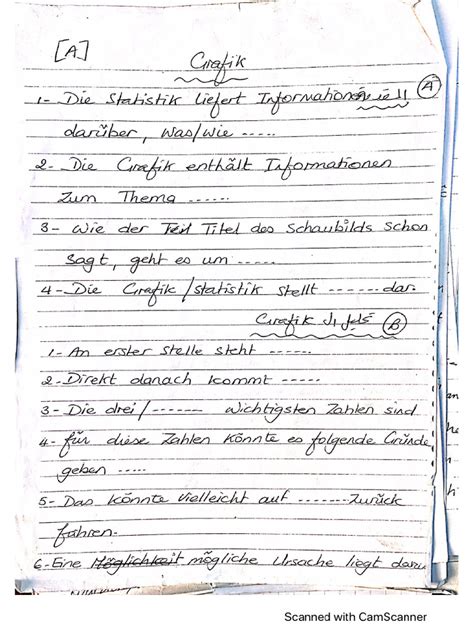 [A]
Grafik
1- Die Statistik liefert Informationen A
darüber, was/wie .....
2- Die Grafik enthält Informationen
zum Thema ......
3- wie der Titel des Schaubilds schon
sagt, geht es um .....
4- Die Grafik/statistik stellt ....... dar.
Grafik B
1- An erster Stelle steht ......
2- Direkt danach kommt ......
3- Die drei/------- wichtigsten Zahlen sind
4- für diese Zahlen könnte es folgende Gründe
geben .....
5- Das könnte vielleicht auf ....... Zurück
fahren.
6- Eine Möglichkeit mögliche Ursache liegt
Scanned with CamScanner